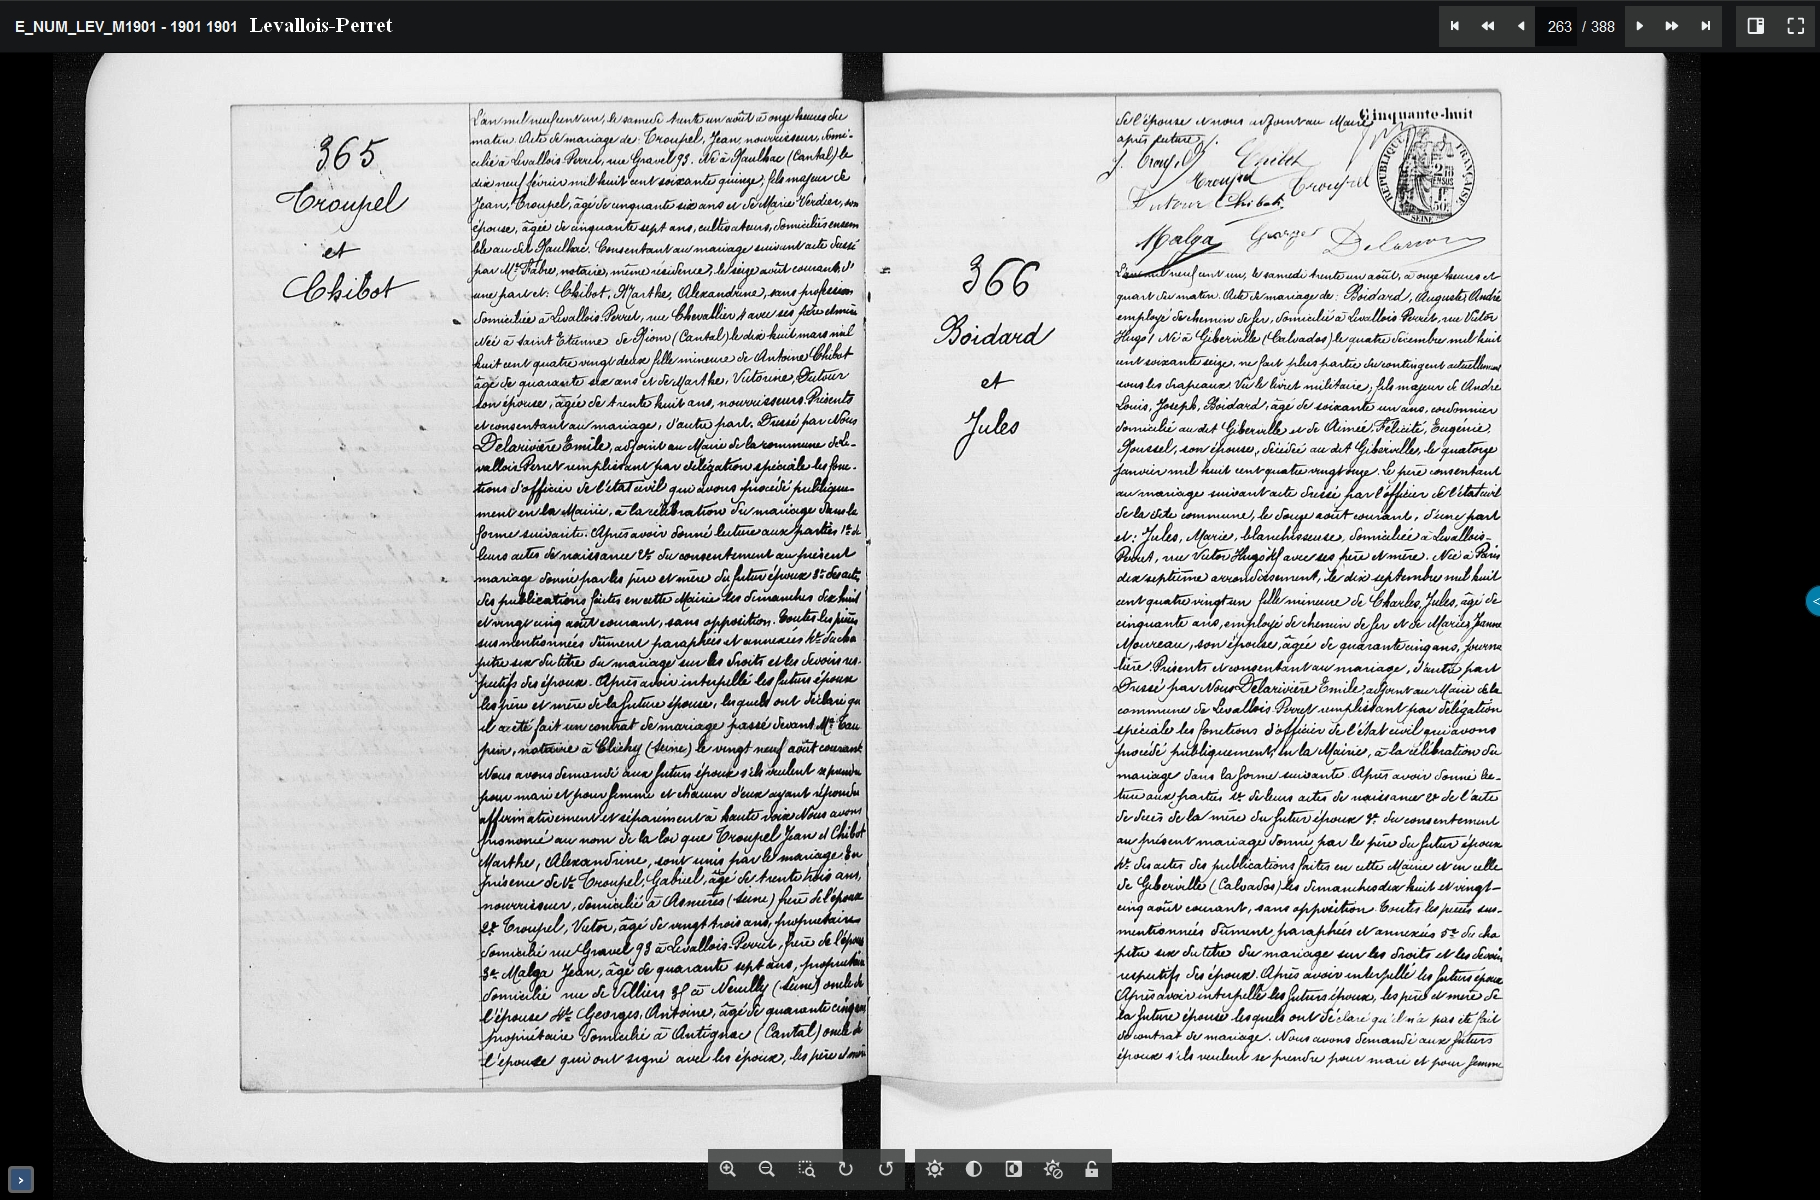 E_NUM_LEV_M1901 - 1901 1901 Levallois-Perret
263 / 388
365
Troupel
et
Chibot
L'an mil neuf cent un, le samedi trente un août à onze heures du
matin. Acte de mariage de: Troupel, Jean, nourrisseur, domi-
cilié à Levallois-Perret, rue Gravel 93. Né à (Cantal) le
dix neuf février mil huit cent soixante quinze, fils majeur de
Jean, Troupel, âgé de cinquante six ans et de Marie Verdier, son
épouse, âgée de cinquante sept ans, cultivateurs, domiciliés ensem
ble au dit. Consentant au mariage suivant acte dressé
par Me Fabre, notaire, même résidence, le seize août courant, d'
une part et: Chibot, Marthe, Alexandrine, sans profession
domiciliée à Levallois-Perret, rue Chevallier 4 avec ses père et mère
Née à Saint Etienne de Riom (Cantal) le dix huit mars mil
huit cent quatre vingt deux fille mineure de Antoine Chibot
âgé de quarante six ans et de Marthe, Victorine, Dutour
son épouse, âgée de trente huit ans, nourrisseurs. Présents
et consentant au mariage, d'autre part. Dressé par Nous
Delarivière Emile, adjoint au Maire de la commune de Le-
vallois-Perret remplissant par délégation spéciale les fonc-
tions d'officier de l'état civil qui avons procédé publique-
ment en la Mairie, à la célébration du mariage dans la
forme suivante. Après avoir donné lecture aux parties 1° de
leurs actes de naissance 2° du consentement au présent
mariage donné par les père et mère du futur époux 3° des actes
des publications faites en cette Mairie les dimanches dix huit
et vingt cinq août courant, sans opposition. Toutes les pièces
susmentionnées dûment paraphées et annexées 4° du cha
pitre six du titre du mariage sur les droits et les devoirs res-
pectifs des époux. Après avoir interpellé les futurs époux
les père et mère de la future épouse, lesquels ont déclaré qu'
il a été fait un contrat de mariage passé devant Me
notaire à Clichy (Seine) le vingt neuf août courant
Nous avons demandé aux futurs époux s'ils veulent se prendre
pour mari et pour femme et chacun d'eux ayant répondu
affirmativement et séparément à haute voix Nous avons
prononcé au nom de la loi que Troupel Jean et Chibot
Marthe, Alexandrine, sont unis par le mariage. En
présence de 1° Troupel, Gabriel, âgé de trente trois ans,
nourrisseur, domicilié à Asnières (Seine) frère de l'époux
2° Troupel, Victor, âgé de vingt trois ans, propriétaire
domicilié rue Gravel 93 à Levallois-Perret, frère de l'époux
3° Malga Jean, âgé de quarante sept ans, propriétaire
domicilié rue de Villiers à Neuilly (Seine) oncle de
l'épouse 4° Georges, Antoine, âgé de quarante cinq ans
propriétaire domicilié à Antignac (Cantal) oncle de
l'épouse qui ont signé avec les époux, les père et mère
de l'épouse et nous adjoint au Maire
après lecture.
Cinquante-huit
J. Troupel Chibot
Troupel Troupel
Dutour Chibot
Malga Georges Delarivière
REPUBLIQUE FRANÇAISE
SEINE
366
Boidard
et
Jules
L'an mil neuf cent un, le samedi trente un août, à onze heures et
quart du matin. Acte de mariage de: Boidard, Auguste, André
employé de chemin de fer, domicilié à Levallois-Perret, rue Victor
Hugo. Né à Giberville (Calvados) le quatre décembre mil huit
cent soixante seize, ne fait plus partie du contingent actuellement
sous les drapeaux. Vu le livret militaire, fils majeur de André
Louis, Joseph, Boidard, âgé de soixante un ans, cordonnier
domicilié au dit Giberville et de Aimée, Félicité, Eugénie,
Roussel, son épouse, décédée au dit Giberville, le quatorze
janvier mil huit cent quatre vingt onze. Le père consentant
au mariage suivant acte dressé par l'officier de l'état civil
de la dite commune, le douze août courant, d'une part
et: Jules, Marie, blanchisseuse, domiciliée à Levallois-
Perret, rue Victor Hugo avec ses père et mère. Née à Paris
dix septième arrondissement, le dix septembre mil huit
cent quatre vingt un fille mineure de Charles, Jules, âgé de
cinquante ans, employé de chemin de fer et de Marie, Jeanne
Moureau, son épouse, âgée de quarante cinq ans, journa
lière. Présents et consentant au mariage, d'autre part
Dressé par Nous Delarivière Emile, adjoint au Maire de la
commune de Levallois-Perret remplissant par délégation
spéciale les fonctions d'officier de l'état civil qui avons
procédé publiquement, en la Mairie, à la célébration du
mariage dans la forme suivante. Après avoir donné lec-
ture aux parties 1° de leurs actes de naissance 2° de l'acte
de décès de la mère du futur époux 3° du consentement
au présent mariage donné par le père du futur époux
4° des actes des publications faites en cette Mairie et en celle
de Giberville (Calvados) les dimanches dix huit et vingt-
cinq août courant, sans opposition. Toutes les pièces sus-
mentionnées dûment paraphées et annexées 5° du cha
pitre six du titre du mariage sur les droits et les devoirs
respectifs des époux. Après avoir interpellé les futurs époux
Après avoir interpellé les futurs époux, les père et mère de
la future épouse lesquels ont déclaré qu'il n'a pas été fait
de contrat de mariage. Nous avons demandé aux futurs
époux s'ils veulent se prendre pour mari et pour femme